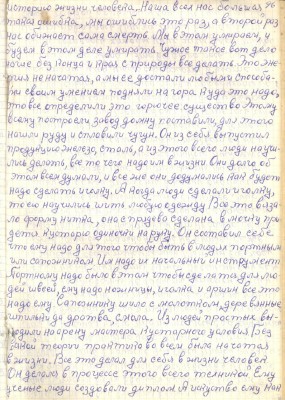 историю жизни человека. Наша всех нас большая, ж
такая ошибка, мы ошиблись это раз, а второй раз
нас обижает сама смерть. Мы в этом умираем, и
будем в этом деле умирать. Чужое такое вот дело
логие без конца и края с природы все делать. Это эне-
ргия не начатая, а мы ее достали любыми способа-
ми своим умением подняли на гора. Куда это надо,
то все определили это горючее существо. Этому
всему построили завод, домну поставили, для этого
нашли руду и сплавили чугун. Он из себя выпустил
продукцию железо, сталь, а из этого всего люди научи-
лись делать, все то чего надо им в жизни. Они долго об
этом всем думали, и все же они додумались как будто
надо сделать иголку. А когда люди сделали иголку,
то его научились шить любую одежду. Все это вяза-
ло форму нитка, она с трудова сделана, в мочку при-
дета кустарю одиночки на руку. Он составил себе
что ему надо для того чтобы быть в людях портным
или сапожником. Им надо их начальный инструмент.
Портному надо было в этом чтобы сделать для лю-
дей швей, ему надо ножницы, иголка и аршин все это
надо ему. Сапожнику шило с молотком, деревянные
шпильки да дратва, смола. Из людей простых вы-
ходили на арену мастера кустарного условия. Без
такой теории практиково всем было начатая
в жизни. Все это делал для себя в жизни человек
Он делался в процессе этого всего техникой. Ему
ученые люди создовали диплом. А искуство ему как